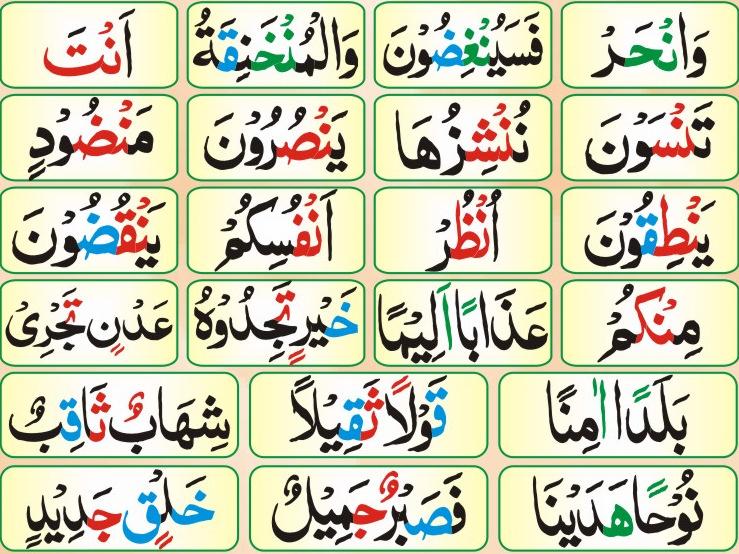 وَانْحَرْ فَسَيُنْغِضُوْنَ وَالْمُنْخَنِقَةُ اَنْتَ
تَنْسَوْنَ نُنْشِزُهَا يَنْصُرُوْنَ مَنْضُوْدٍ
يَنْطِقُوْنَ اُنْظُرْ اَنْفُسِكُمْ يَنْقُضُوْنَ
مِنْكُمْ عَذَابًا اَلِيْمًا خَيْرٍ تَجِدُوْهُ عَدْنٍ تَجْرِىْ
بَلَدًا اٰمِنًا قَوْلًا ثَقِيْلًا شِهَابٌ ثَاقِبٌ
نُوْحًا هَدَيْنَا فَصَبْرٌ جَمِيْلٌ خَلْقٍ جَدِيْدٍ